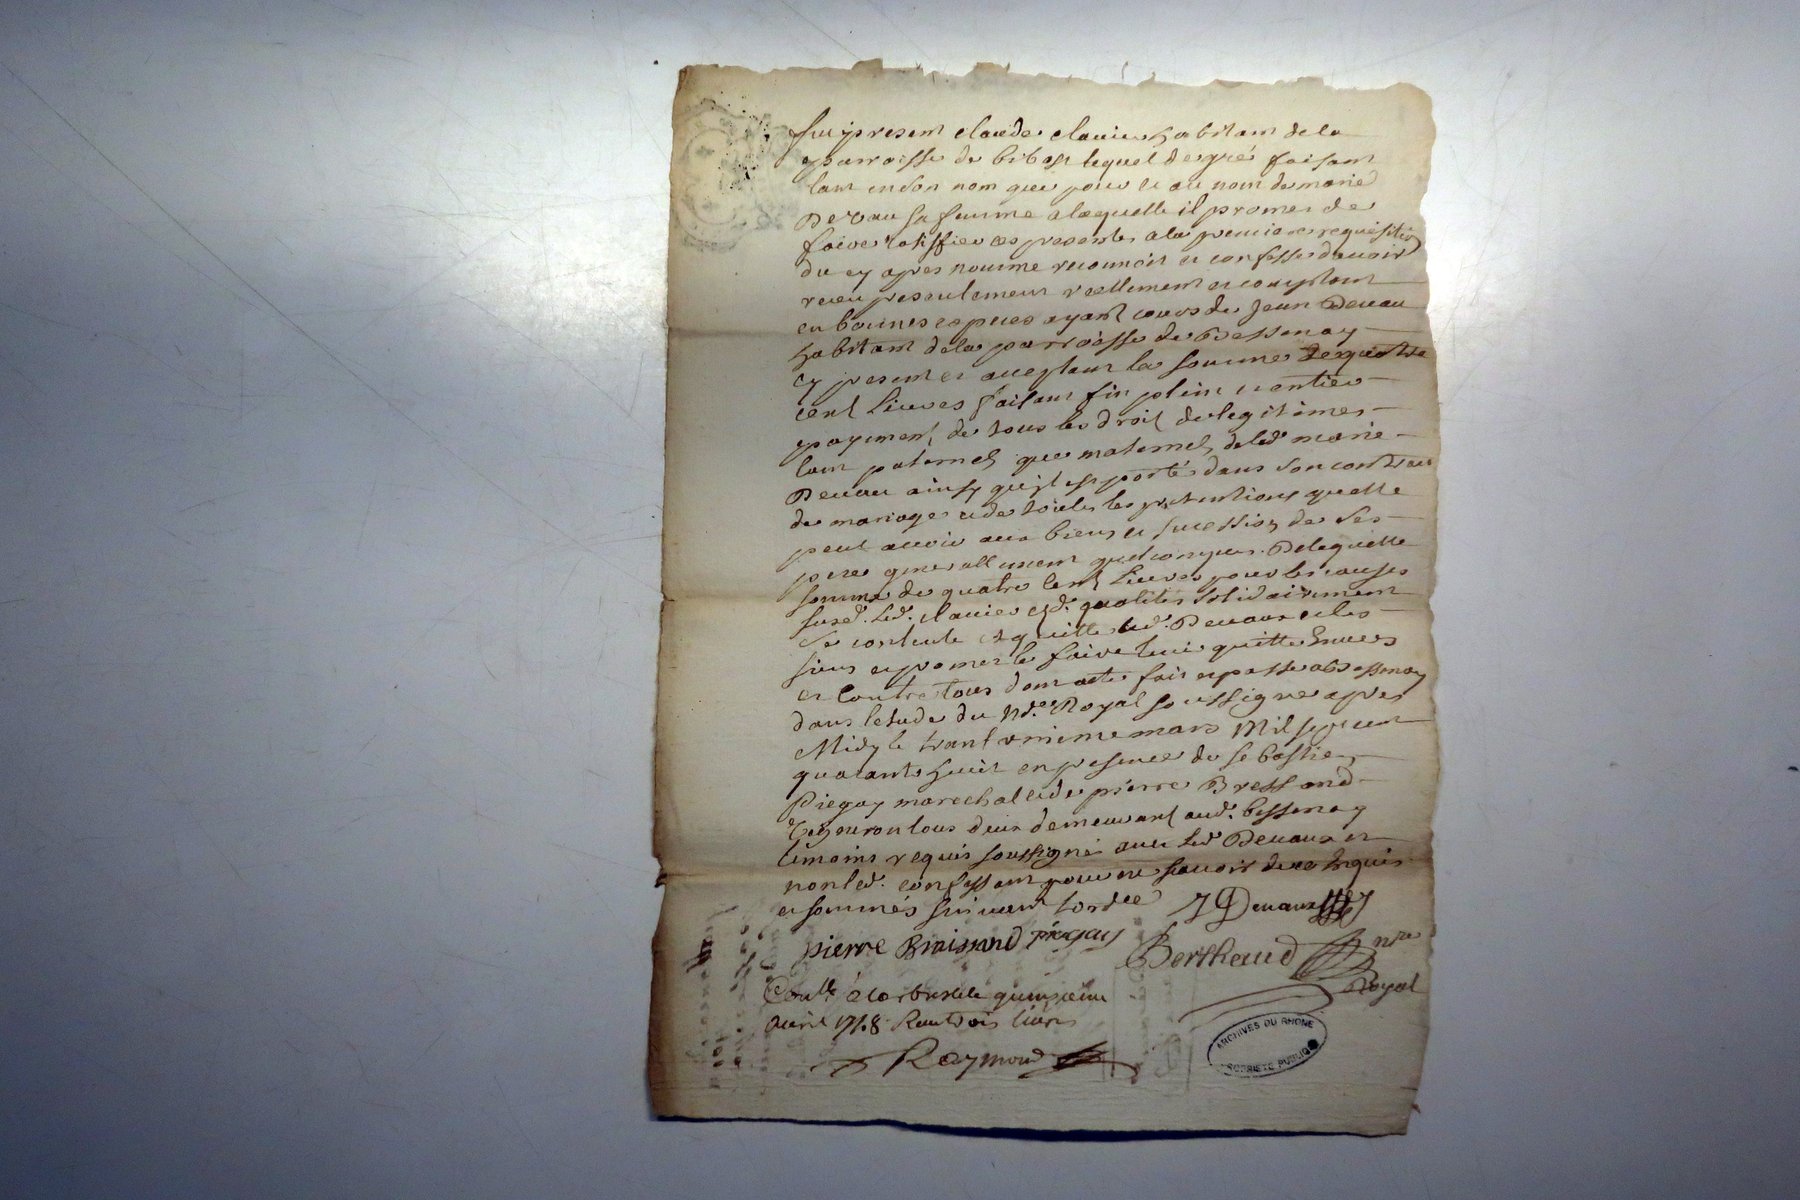 fut present claude clavier habitant de la
parroisse de bibost lequel de gré faisant
tant en son nom que pour et au nom de marie
Devau sa femme a laquelle il promet de
faire ratiffier ces presentes a la premiere requisition
du cy apres nommé reconnoit et confesse davoir
receu presentement reellement et comptant
en bonnes especes ayant cours de Jean Devau
habitant de la parroisse de Bessenay
cy present et acceptant la somme de quatre
cent Livres faisant fin plein et entier
payement de tous les droit de legitimes
tant paternel que maternel de lad. marie
Devau ainsy quil est porté dans son contract
de mariage et de toutes les pretentions quelle
peut avoir aux biens et sucession de ses
pere generallement quelconques. De laquelle
somme de quatre cent Livres pour les causes
susd. led. clavier esd. qualités solidairement
se contente et quitte led. Devaux et les
siens et promet le faire tenir quitte Envers
et Contre tous dont acte fait et passé a Bessenay
dans letude du Nore. Royal soussigné apres
Midy le trant unieme mars Mil sept cent
quarante huit en presence de Sebastien
Piegay marechal et de pierre Bressand
tous deux demeurant aud. bessenay
temoins requis soussignés avec led. Devaux et
non led. confessant pour ne scavoir de ce Enquis
et sommés suivant lordce
J Devaux
pierre Braissand piegay
Bertheaud nre
Royal
Conlle. a larbresle quinzieme
avril 1748. Reçu trois livres
Raymond
ARCHIVES DU RHONE
PROPRIETE PUBLIQUE